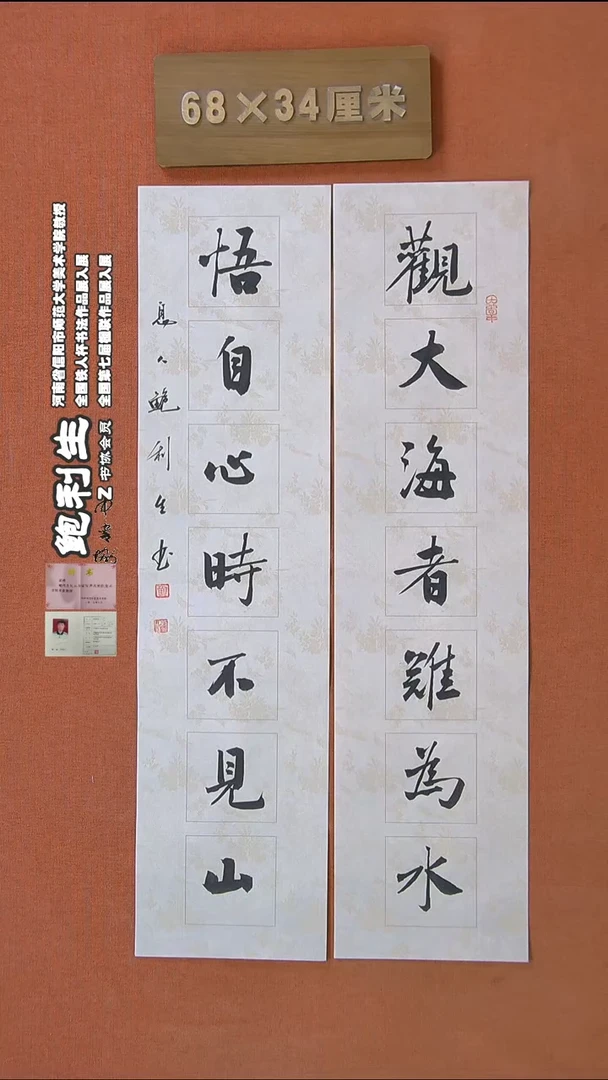 68×34厘米
觀大海者難為水
悟自心時不見山
鲍利生书
鲍利生
书协会员
河南省信阳市师范大学美术学院教授
全国铁人杯书法作品展入展
全国第七届楹联作品展入展